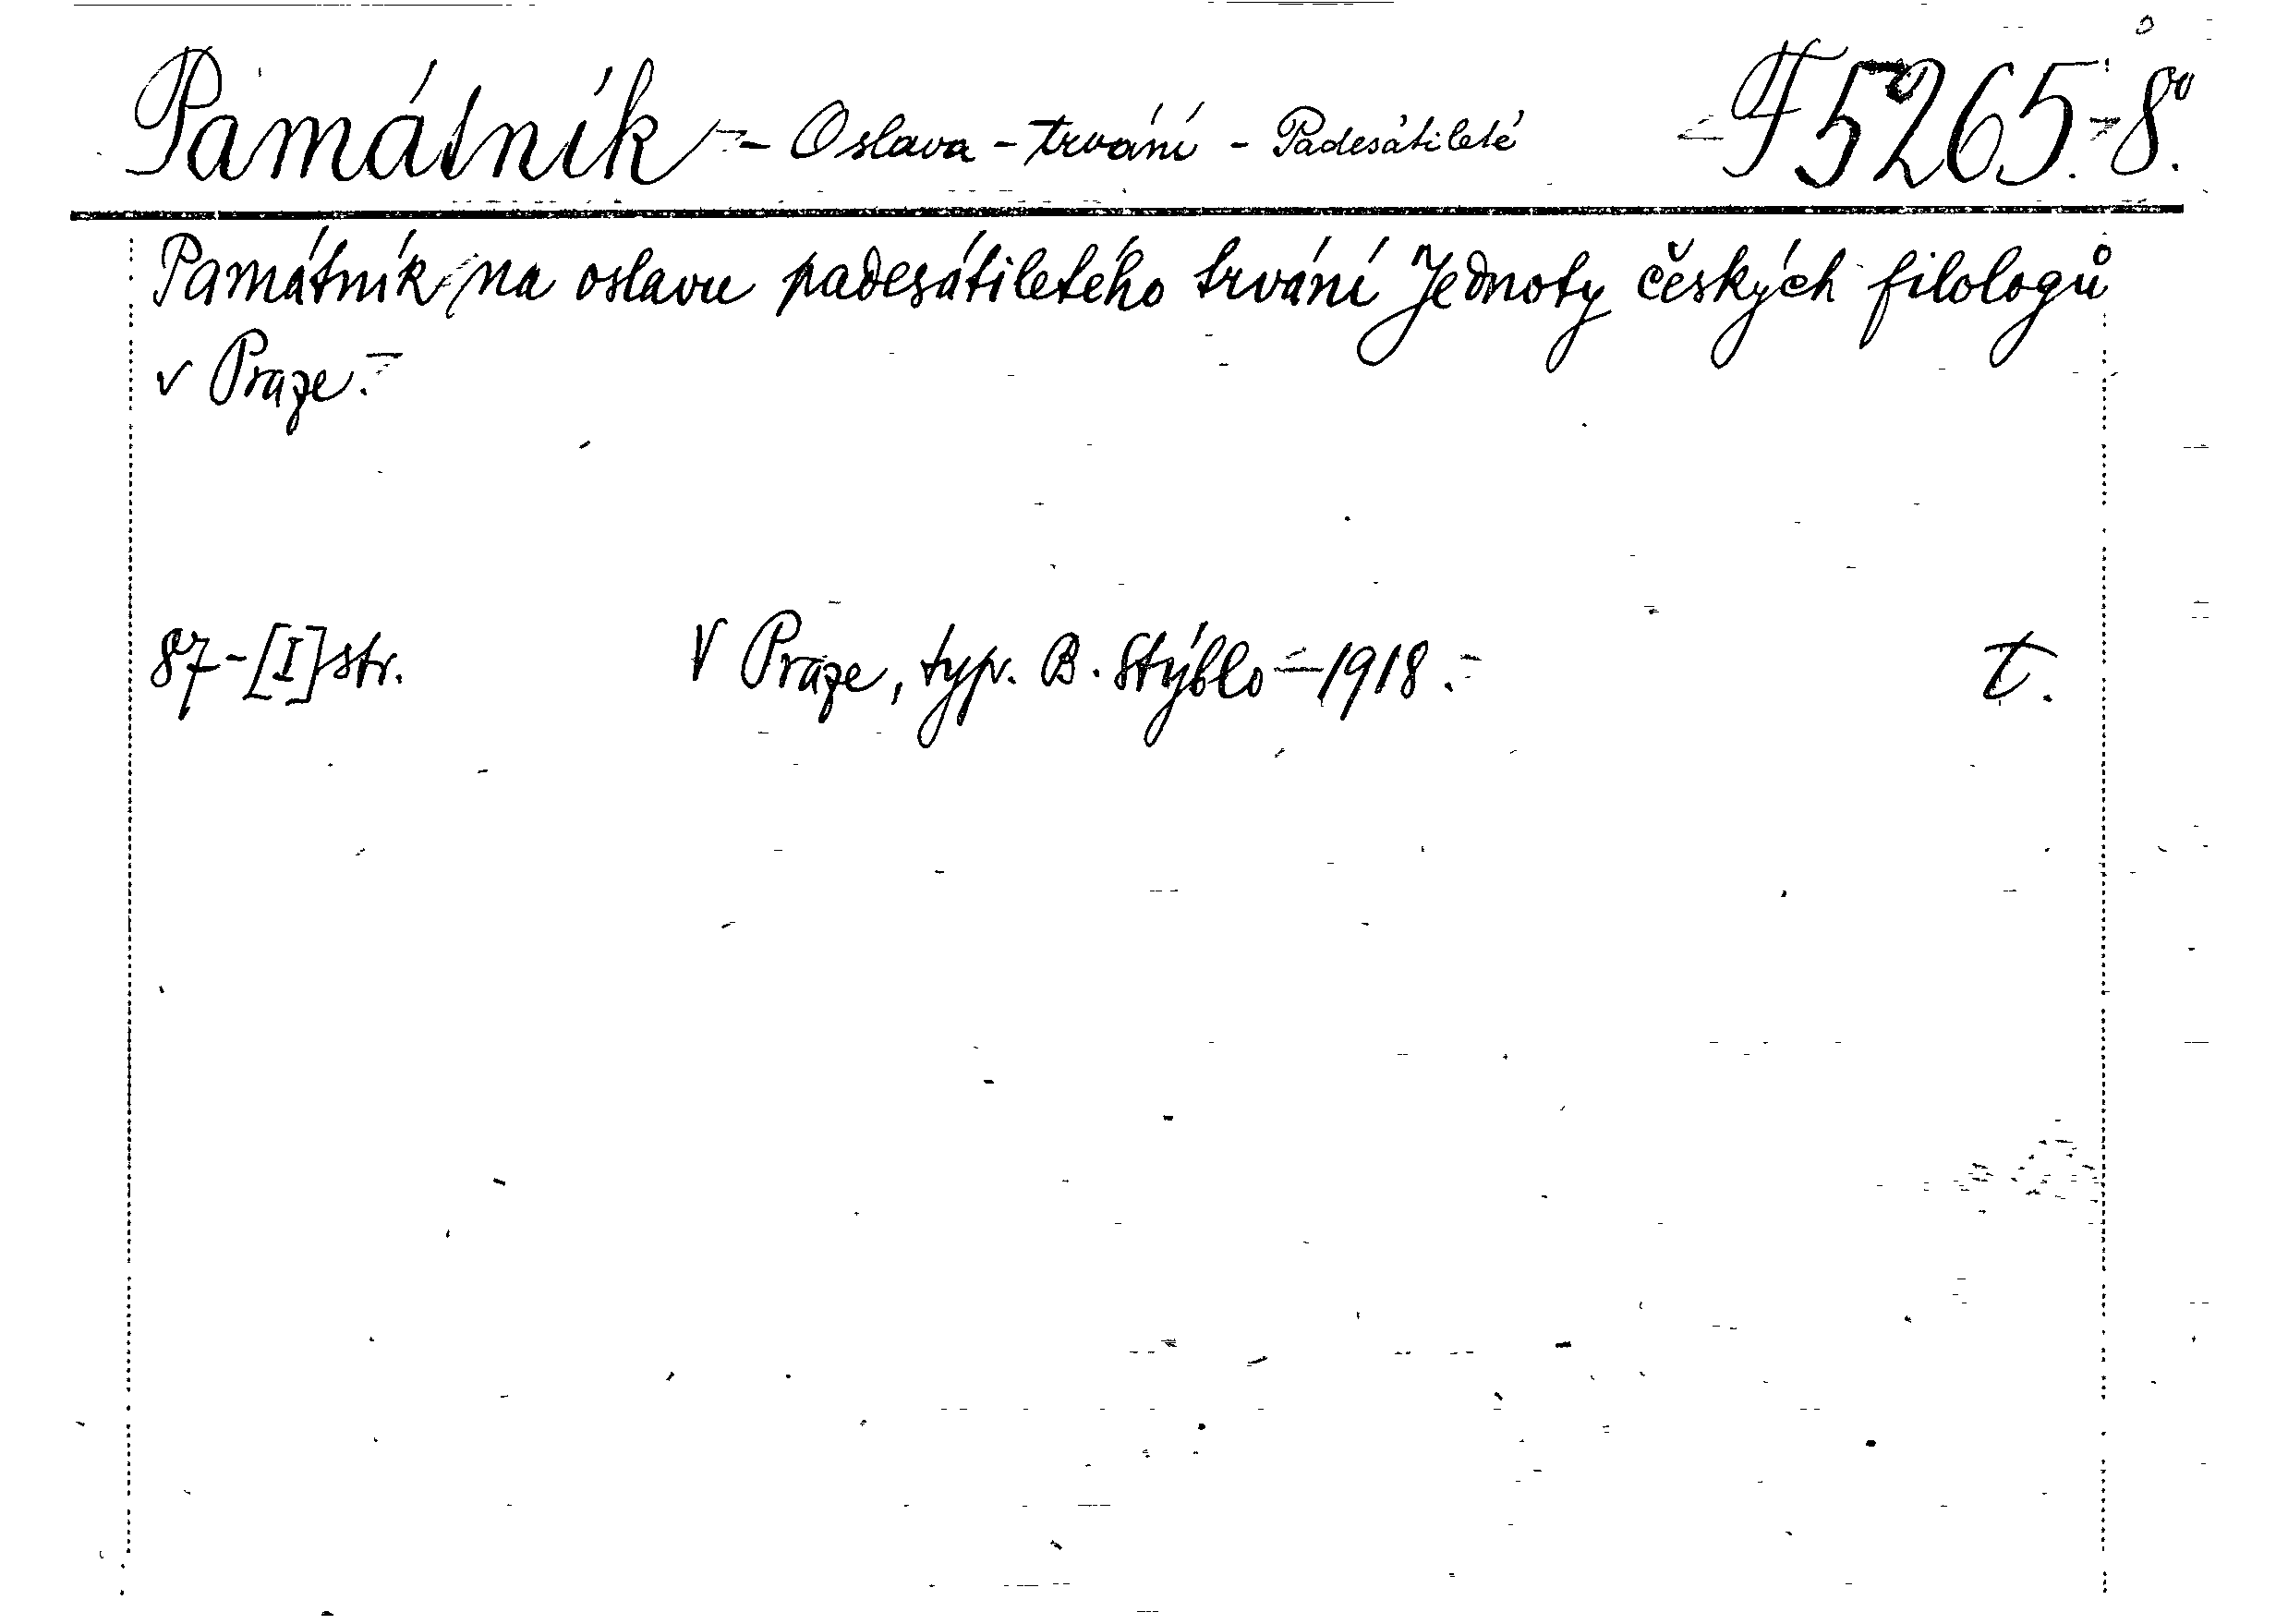 Památník - Oslava - trvání - Padesátileté F 5265. - 8°.
Památník na oslavu padesátiletého trvání Jednoty českých filologů
v Praze.
87-[I] str. V Praze, typ. B. Stýblo - 1918. t.